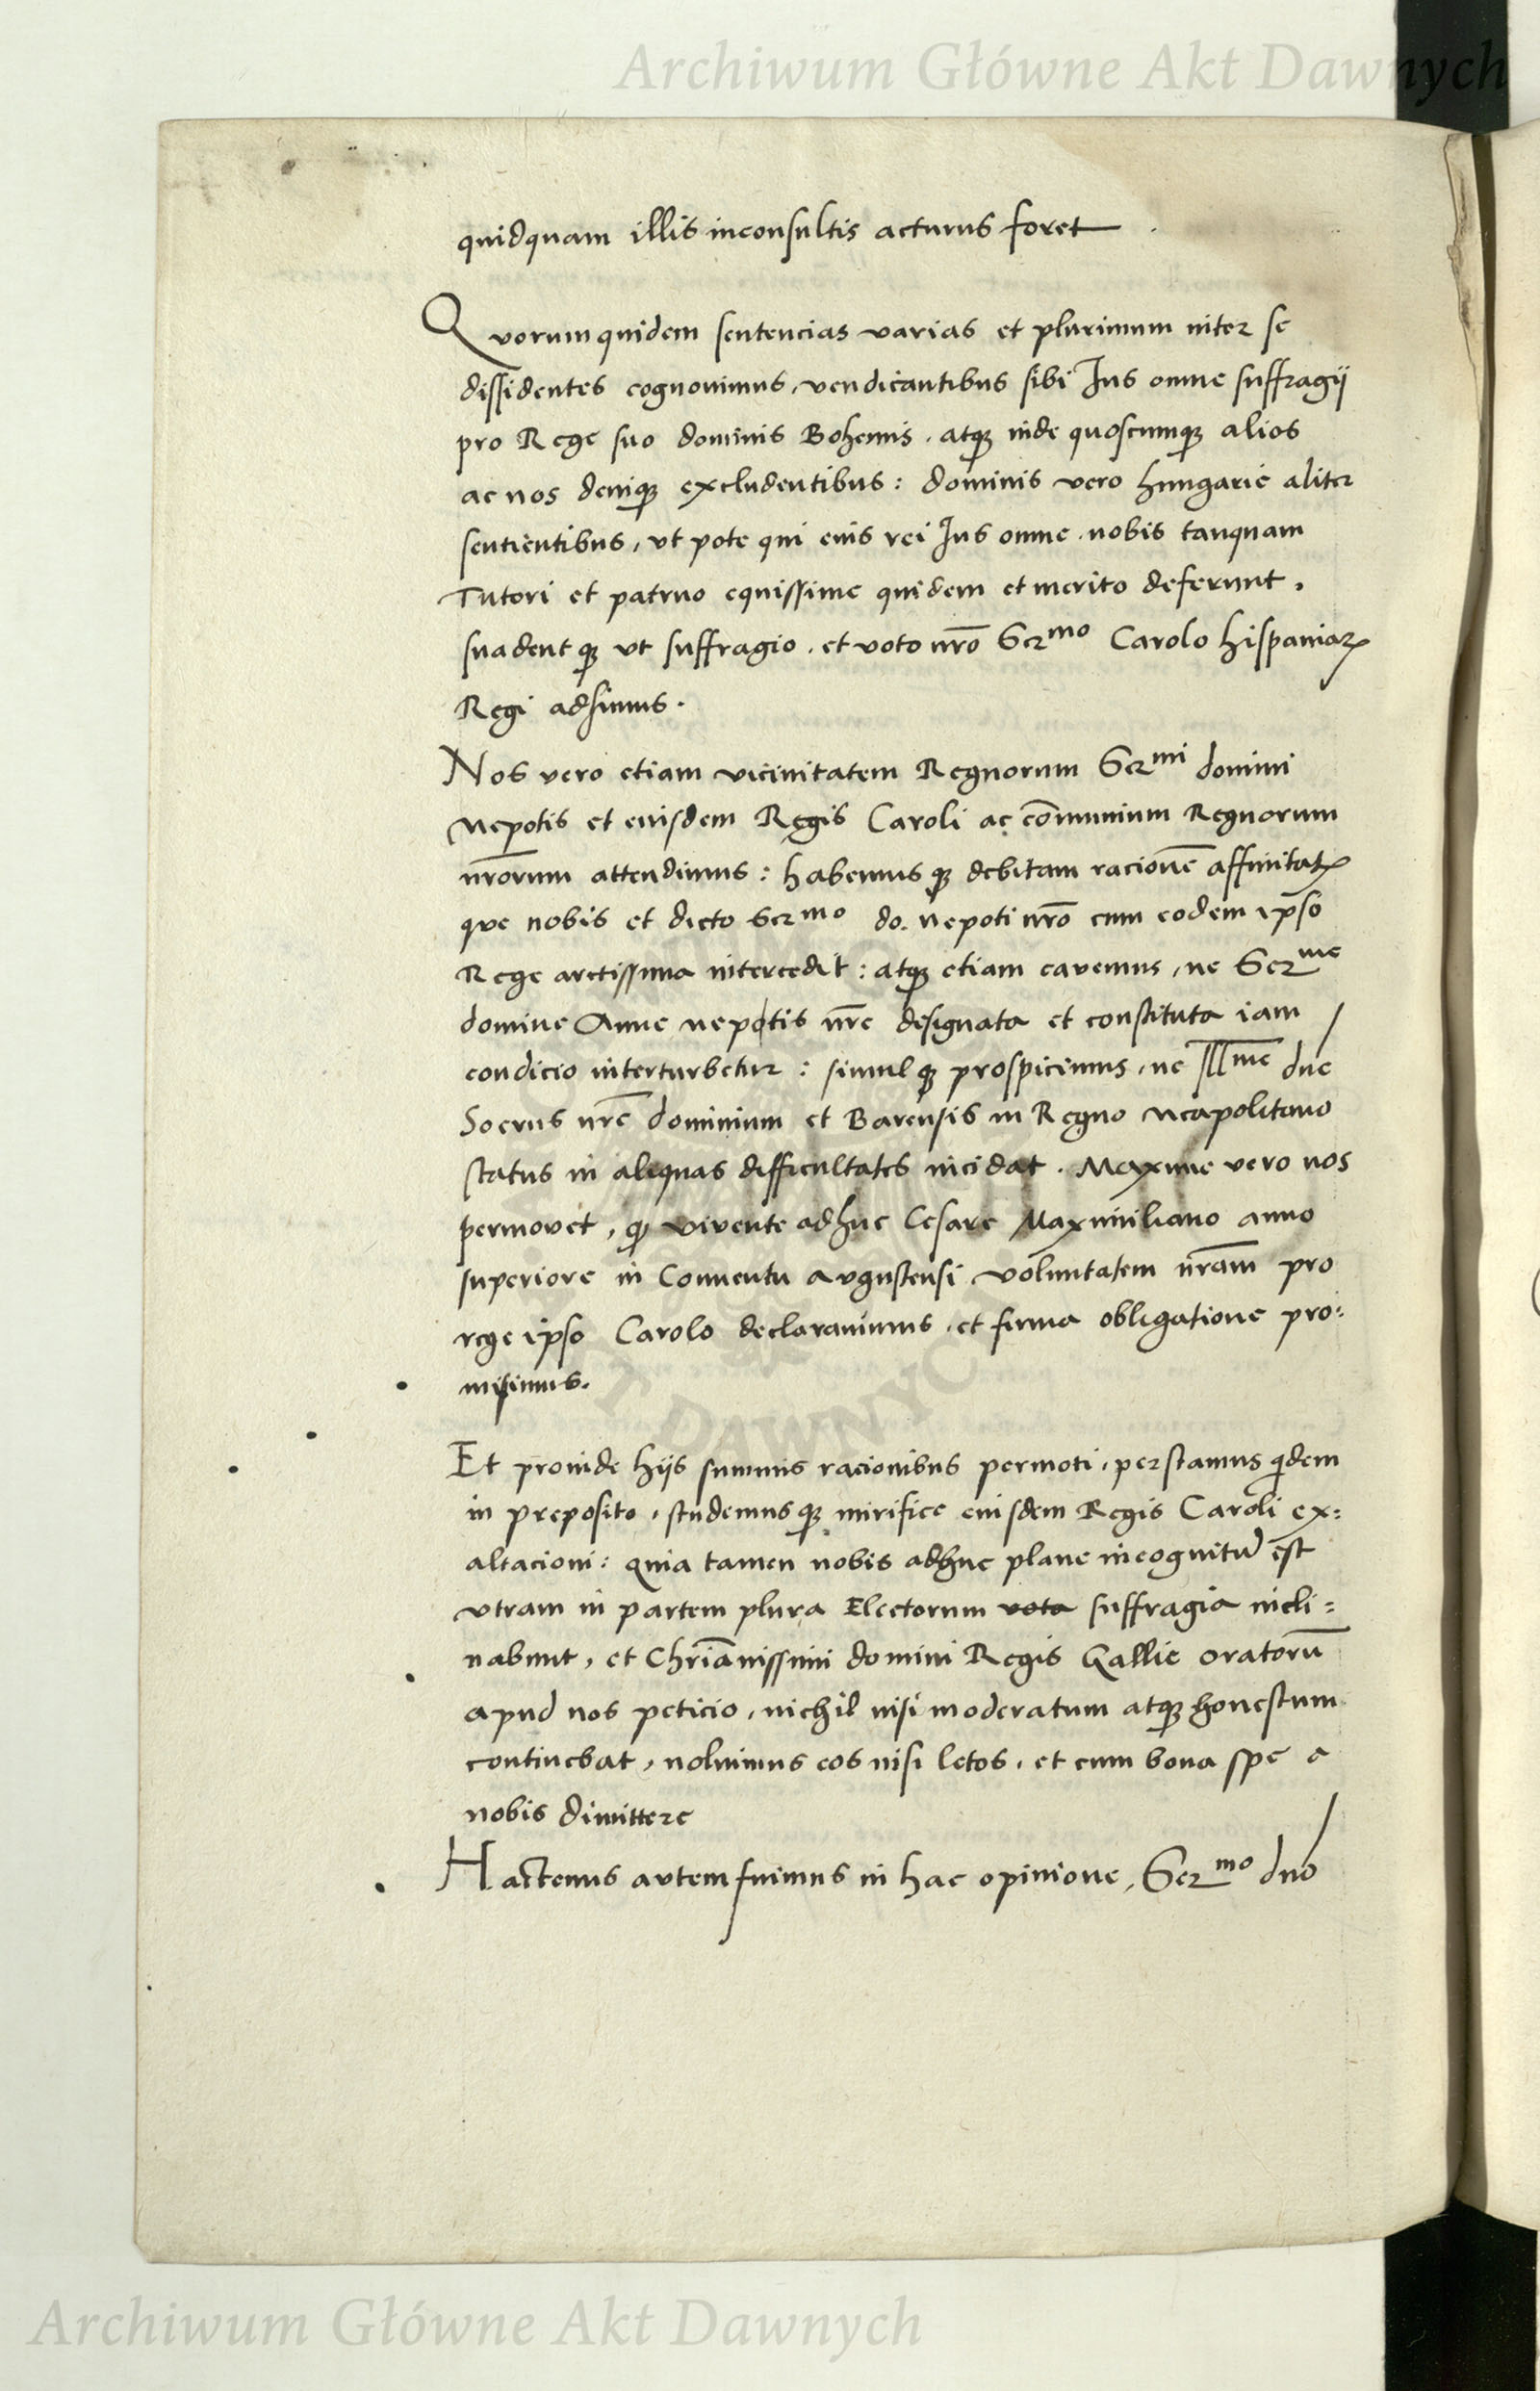 Archiwum Główne Akt Dawnych
quidquam illis inconsultis acturus foret
Quorum quidem sentencias varias et plurimum inter se
dissidentes cognovimus, vendicantibus sibi Ius omne suffragij
pro Rege suo dominis Bohemis, atqꝫ inde quoscumqꝫ alios
ac nos deniqꝫ excludentibus: dominis vero hungarie aliter
sentientibus, ut pote qui eius rei Ius omne nobis tanquam
Tutori et patruo equissime quidem et merito deferunt,
suadentqꝫ ut suffragio, et voto nr̄o Serᵐᵒ Carolo hispaniaꝝ
Regi adsimus.
Nos vero etiam vicinitatem Regnorum Serᵐⁱ domini
Nepotis et eiusdem Regis Caroli ac cōmunium Regnorum
nr̄orum attendimus: habemusqꝫ debitam racionē affinitatꝭ
que nobis et dicto Serᵐᵒ do. nepoti nr̄o cum eodem ip̄so
Rege arctissima intercedit: atqꝫ etiam cavemus, ne Serᵐᵉ
domine Anne nepotis nr̄e designata et constituta iam
condicio interturbetur: simulqꝫ prospicimus, ne Illᵐᵉ dne
Socrus nr̄e dominium et Barensis in Regno Neapolitano
status in aliquas difficultates incidat. Maxime vero nos
permovet, qꝫ vivente adhuc Cesare Maximiliano anno
superiore in Conventu augustensi voluntatem nr̄am pro
rege ipso Carolo declaravimus, et firma obligatione pro:
misimus.
Et proinde hijs summis racionibus permoti, perstamus qidem
in preposito, studemusqꝫ mirifice eiusdem Regis Caroli ex:
altacioni: quia tamen nobis adhuc plane incognitū est
utram in partem plura Electorum vota suffragia incli:
nabunt, et Chriānissimi domini Regis Gallie oratorū
apud nos peticio, nichil nisi moderatum atqꝫ honestum
continebat, noluimus eos nisi letos, et cum bona spe a
nobis dimittere
Hactenus autem fuimus in hac opinione, Serᵐᵒ dno
Archiwum Główne Akt Dawnych